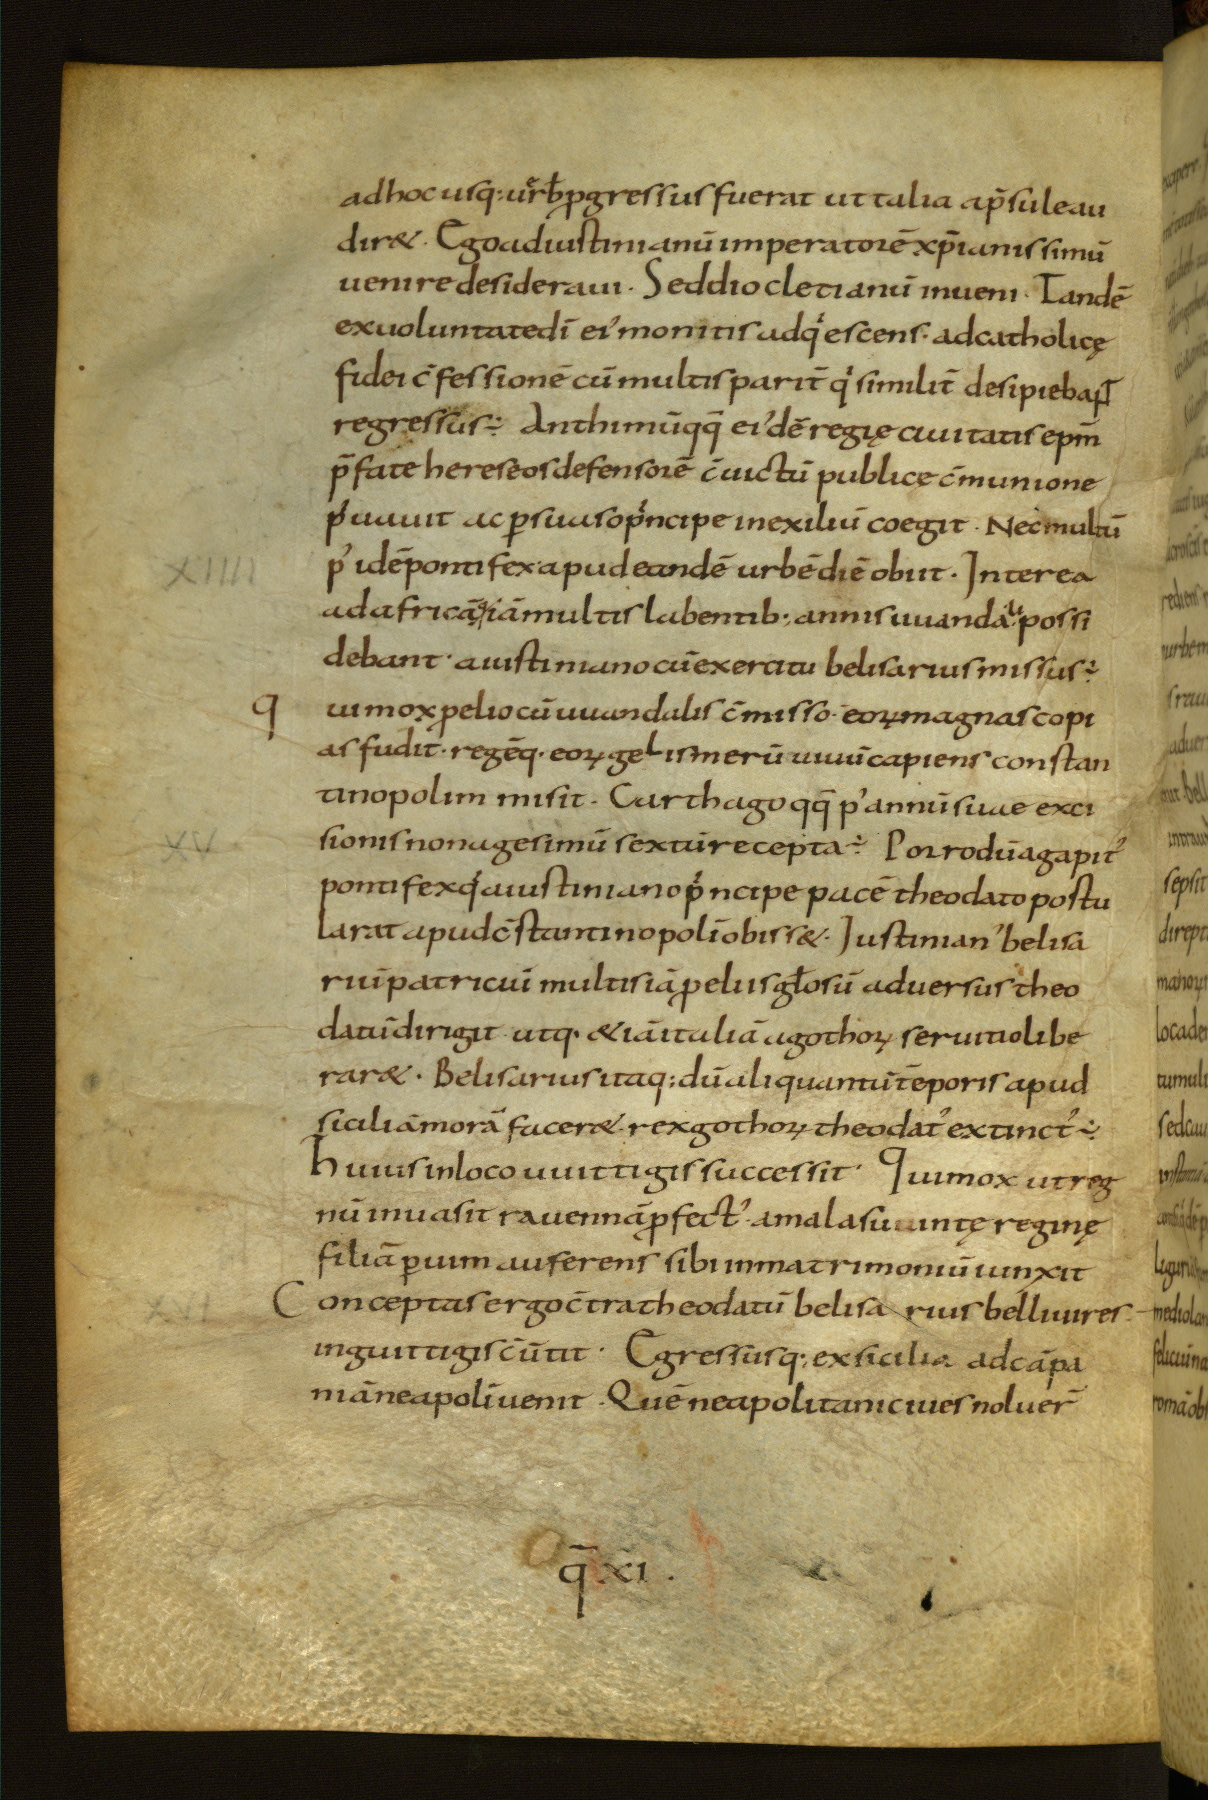 adhoc usq; urb̄ ꝓgressus fuerat ut talia ap̄sule au
dir&. Ego ad iustinianū imperatorē xp̄ianissimū
uenire desideraui. Sed diocletianū inueni. Tandē
ex uoluntate dī ei' monitis adqͥescens. ad catholicę
fidei c̄fessionē cū multis parit̄ qͥ similit̄ desipiebant
regressus÷ Anthimū qq̄ ei'dē regię ciuitatis ep̄m
p̄fate hereseos defensorē c̄uictū publice c̄munione
pͥuauit ac ꝑsuaso pͥncipe in exiliū coegit. Nec multū
p' idē pontifex apud eandē urbē diē obiit. Interea
ad africā iā multis labentib; annis uuandali possi
debant. a iustiniano cū exercitu belisarius missus÷
q ui mox p̄elio cū uuandalis c̄misso. eoꝝ magnas copi
as fudit. regēq. eoꝝ gelismerū uiuū capiens constan
tinopolim misit. Carthago qq̄ p' annū suae exci
sionis nonagesimū sextū recepta÷ Porro dū agapit'
pontifex qͥ a iustiniano pͥncipe pacē theodato postu
larat apud c̄stantinopolī obiss&. Iustinian' belisa
riū patriciū multis iā p̄eliis gl̄osū aduersus theo
datū dirigit utq. &iā italiā a gothoꝝ seruitio libe
rar&. Belisarius itaq; dū aliquantū tēporis apud
siciliā morā facer& rex gothoꝝ theodat' extinct'÷
Huius in loco uuittigis successit. Qui mox ut reg
nū inuasit rauennā ꝓfect'. amalasuintę reginę
filiā ꝑ uim auferens sibi in matrimoniū iunxit
Conceptas ergo c̄tra theodatū belisarius belli uires
in guittigis c̄ūtit. Egressusq; ex sicilia ad cāpa
niā neapolī uenit. Quē neapolitani ciues noluer̄
q̄ xi.